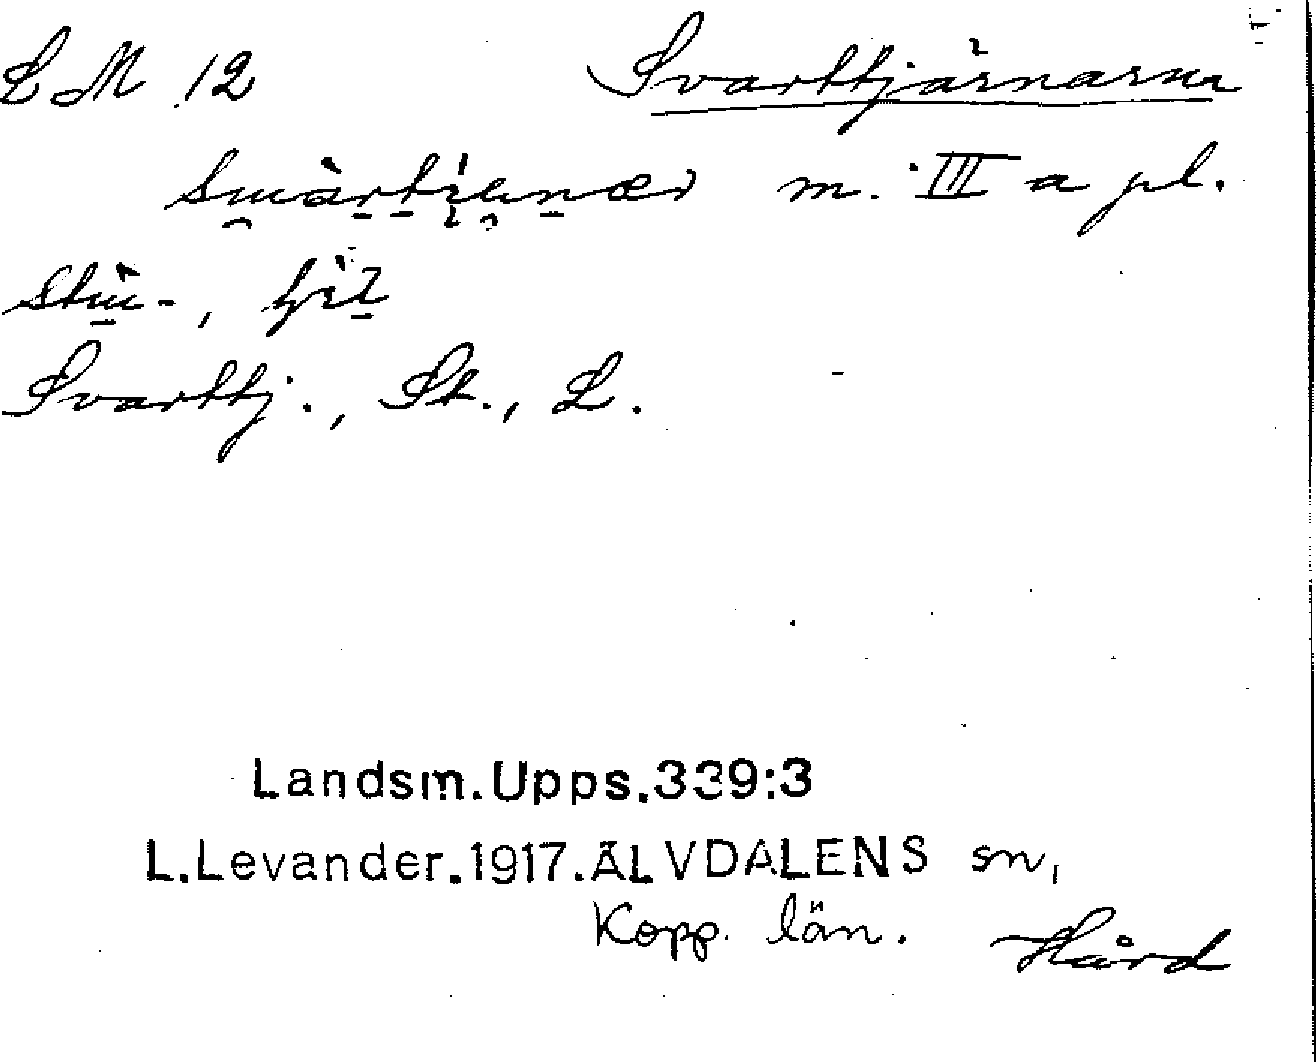 LM 12 Svarttjärnarna
m. III a pl.
Svarttj., St., L.
Landsm.Upps.339:3
L.Levander.1917.ÄLVDALENS sn,
Kopp. län. Hård